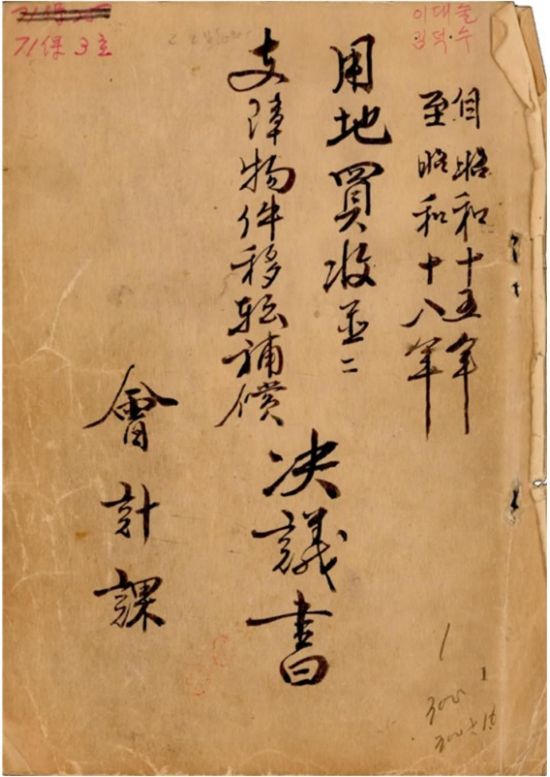 71保 3호
이대술
김덕수
自昭和十五年
至昭和十八年
用地買收並ニ
支障物件移転補償
決議書
會計課